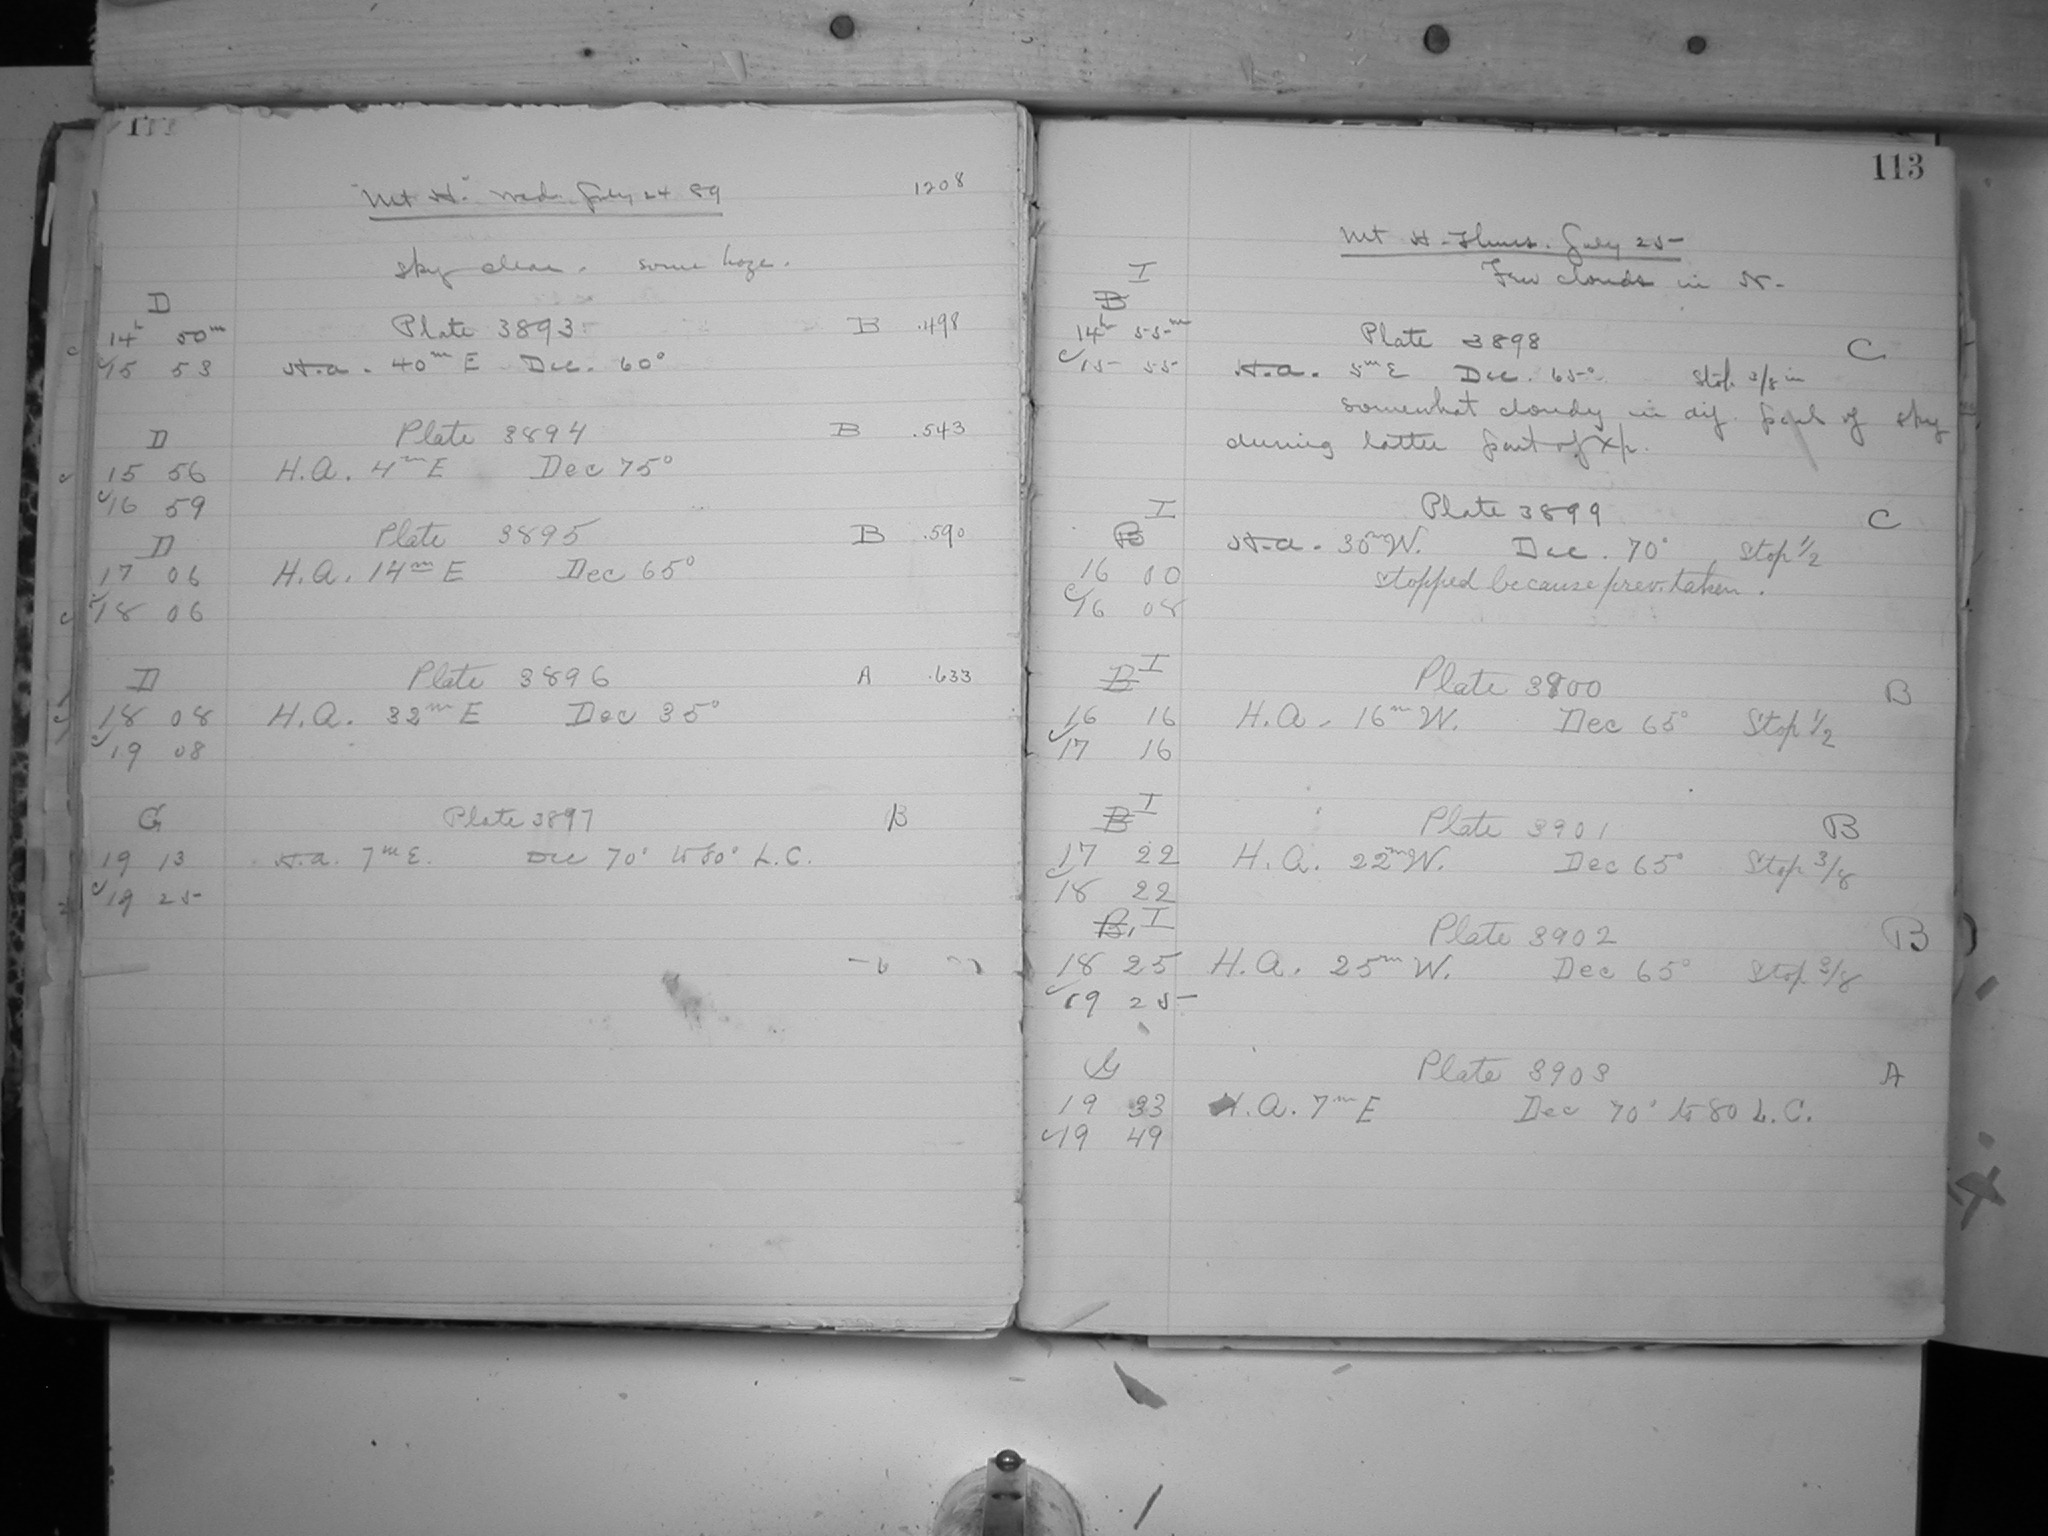 "Mt H." Wed. July 24 89 1208
Sky clear. some haze.
D
14h 50m Plate 3893 B .498
15 53 H.A. 40m E Dec. 60°
D Plate 3894 B .543
15 56 H.A. 4m E Dec 75°
16 59
D Plate 3895 B .590
17 06 H.A. 14m E Dec 65°
18 06
D Plate 3896 A .633
18 08 H.A. 32m E Dec 35°
19 08
G Plate 3897 B
19 13 H.a. 7m E. Dec 70° to 80° L.C.
19 25
113
Mt H - Thurs. July 25
Few clouds in N.
I
B
14h 55m Plate 3898 C
15 55 H.a. 5m E Dec. 65° Stop 3/8 in
somewhat cloudy in dif. parts of sky
during latter part of Xp.
I Plate 3899 C
B H.a. 30m W. Dec. 70° Stop 1/2
16 00 stopped because prev. taken.
16 08
B I Plate 3900 B
16 16 H.A. 16m W. Dec 65° Stop 1/2
17 16
B I Plate 3901 B
17 22 H.A. 22m W. Dec 65° Stop 3/8
18 22
B, I Plate 3902 B
18 25 H.A. 25m W. Dec 65° Stop 3/8
19 25
G Plate 3903 A
19 33 H.A. 7m E Dec 70° to 80 L.C.
19 49